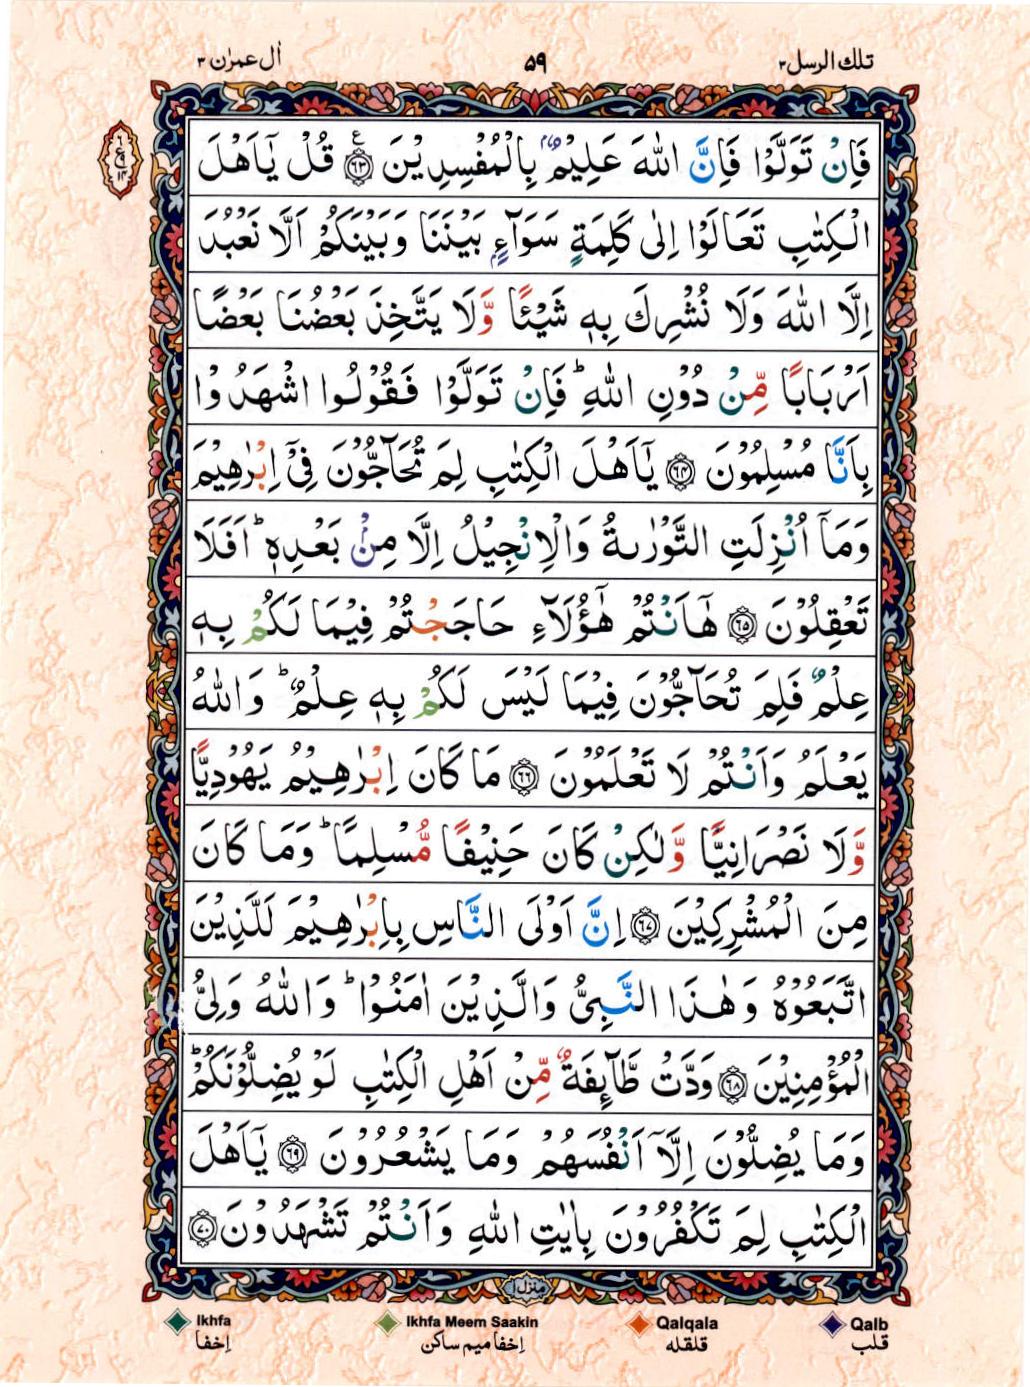 تلك الرسل ٣
٥٩
اٰل عمرٰن ٣
فَاِنْ تَوَلَّوْا فَاِنَّ اللّٰهَ عَلِیْمٌۢ بِالْمُفْسِدِیْنَ ﴿۶۳﴾ ع قُلْ یٰۤاَهْلَ
الْكِتٰبِ تَعَالَوْا اِلٰی كَلِمَةٍ سَوَآءٍۭ بَیْنَنَا وَبَیْنَكُمْ اَلَّا نَعْبُدَ
اِلَّا اللّٰهَ وَلَا نُشْرِكَ بِهٖ شَیْـًٔا وَّلَا یَتَّخِذَ بَعْضُنَا بَعْضًا
اَرْبَابًا مِّنْ دُوْنِ اللّٰهِ ؕ فَاِنْ تَوَلَّوْا فَقُوْلُوا اشْهَدُوْا
بِاَنَّا مُسْلِمُوْنَ ﴿۶۴﴾ یٰۤاَهْلَ الْكِتٰبِ لِمَ تُحَآجُّوْنَ فِیْۤ اِبْرٰهِیْمَ
وَمَاۤ اُنْزِلَتِ التَّوْرٰىةُ وَالْاِنْجِیْلُ اِلَّا مِنْۢ بَعْدِهٖ ؕ اَفَلَا
تَعْقِلُوْنَ ﴿۶۵﴾ هٰۤاَنْتُمْ هٰۤؤُلَآءِ حَاجَجْتُمْ فِیْمَا لَكُمْ بِهٖ
عِلْمٌ فَلِمَ تُحَآجُّوْنَ فِیْمَا لَیْسَ لَكُمْ بِهٖ عِلْمٌ ؕ وَاللّٰهُ
یَعْلَمُ وَاَنْتُمْ لَا تَعْلَمُوْنَ ﴿۶۶﴾ مَا كَانَ اِبْرٰهِیْمُ یَهُوْدِیًّا
وَّلَا نَصْرَانِیًّا وَّلٰكِنْ كَانَ حَنِیْفًا مُّسْلِمًا ؕ وَمَا كَانَ
مِنَ الْمُشْرِكِیْنَ ﴿۶۷﴾ اِنَّ اَوْلَی النَّاسِ بِاِبْرٰهِیْمَ لَلَّذِیْنَ
اتَّبَعُوْهُ وَهٰذَا النَّبِیُّ وَالَّذِیْنَ اٰمَنُوْا ؕ وَاللّٰهُ وَلِیُّ
الْمُؤْمِنِیْنَ ﴿۶۸﴾ وَدَّتْ طَّآىِٕفَةٌ مِّنْ اَهْلِ الْكِتٰبِ لَوْ یُضِلُّوْنَكُمْ ؕ
وَمَا یُضِلُّوْنَ اِلَّاۤ اَنْفُسَهُمْ وَمَا یَشْعُرُوْنَ ﴿۶۹﴾ یٰۤاَهْلَ
الْكِتٰبِ لِمَ تَكْفُرُوْنَ بِاٰیٰتِ اللّٰهِ وَاَنْتُمْ تَشْهَدُوْنَ ﴿۷۰﴾
منزل ١
Ikhfa Ikhfa Meem Saakin Qalqala Qalb
إخفا إخفا ميم ساكن قلقله قلب